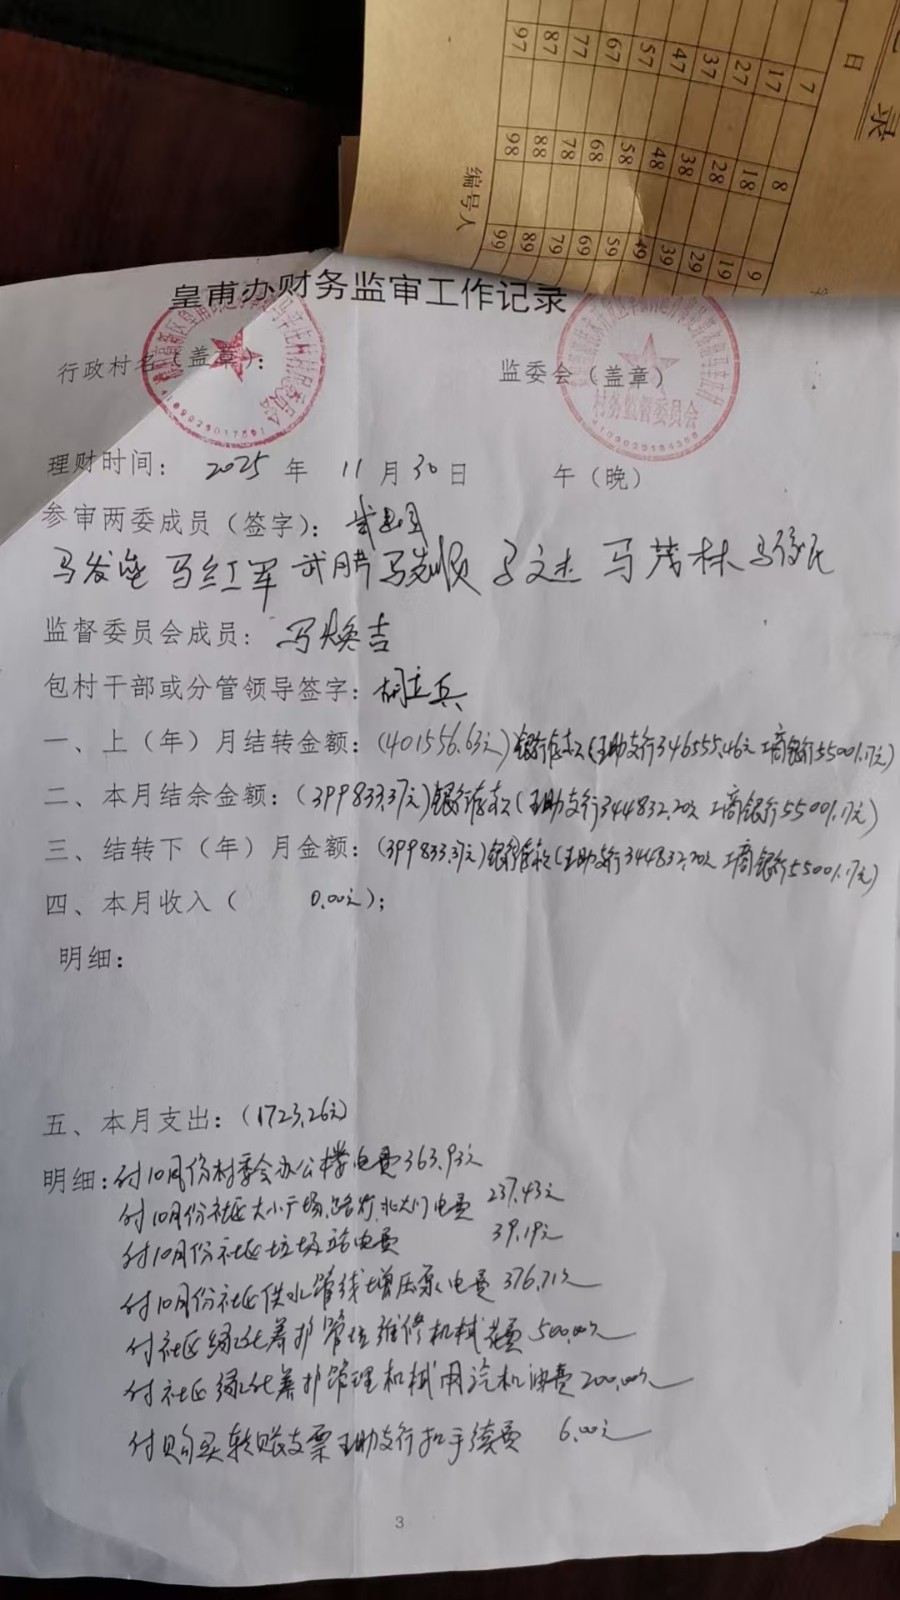 录
日
7 8 9
17 18 19
27 28 29
37 38 39
47 48 49
57 58 59
67 68 69
77 78 79
87 88 89
97 98 99
编号人
皇甫办财务监审工作记录
行政村名（盖章）： 监委会（盖章）
村务监督委员会
理财时间： 2025 年 11 月 30 日 午（晚）
参审两委成员（签字）：
马红军 马文杰 马茂林
监督委员会成员： 马焕吉
包村干部或分管领导签字： 胡立兵
一、上（年）月结转金额：(401556.63元)银行存款(王助支行346555.46元 工商银行55001.17元)
二、本月结余金额：(399833.37元)银行存款(王助支行344832.20元 工商银行55001.17元)
三、结转下（年）月金额：(399833.37元)银行存款(王助支行344832.20元 工商银行55001.17元)
四、本月收入（ 0.00元）；
明细：
五、本月支出：(1723.26元)
明细：付10月份村委会办公楼电费363.93元
付10月份社区大小广场,路灯,北大门电费 237.43元
付10月份社区垃圾站电费 39.19元
付10月份社区供水管线增压泵电费 376.71元
付社区绿化养护管理维修机械花费 500.00元
付社区绿化养护管理机械用汽机油费200.00元
付购买转账支票王助支行扣手续费 6.00元
3